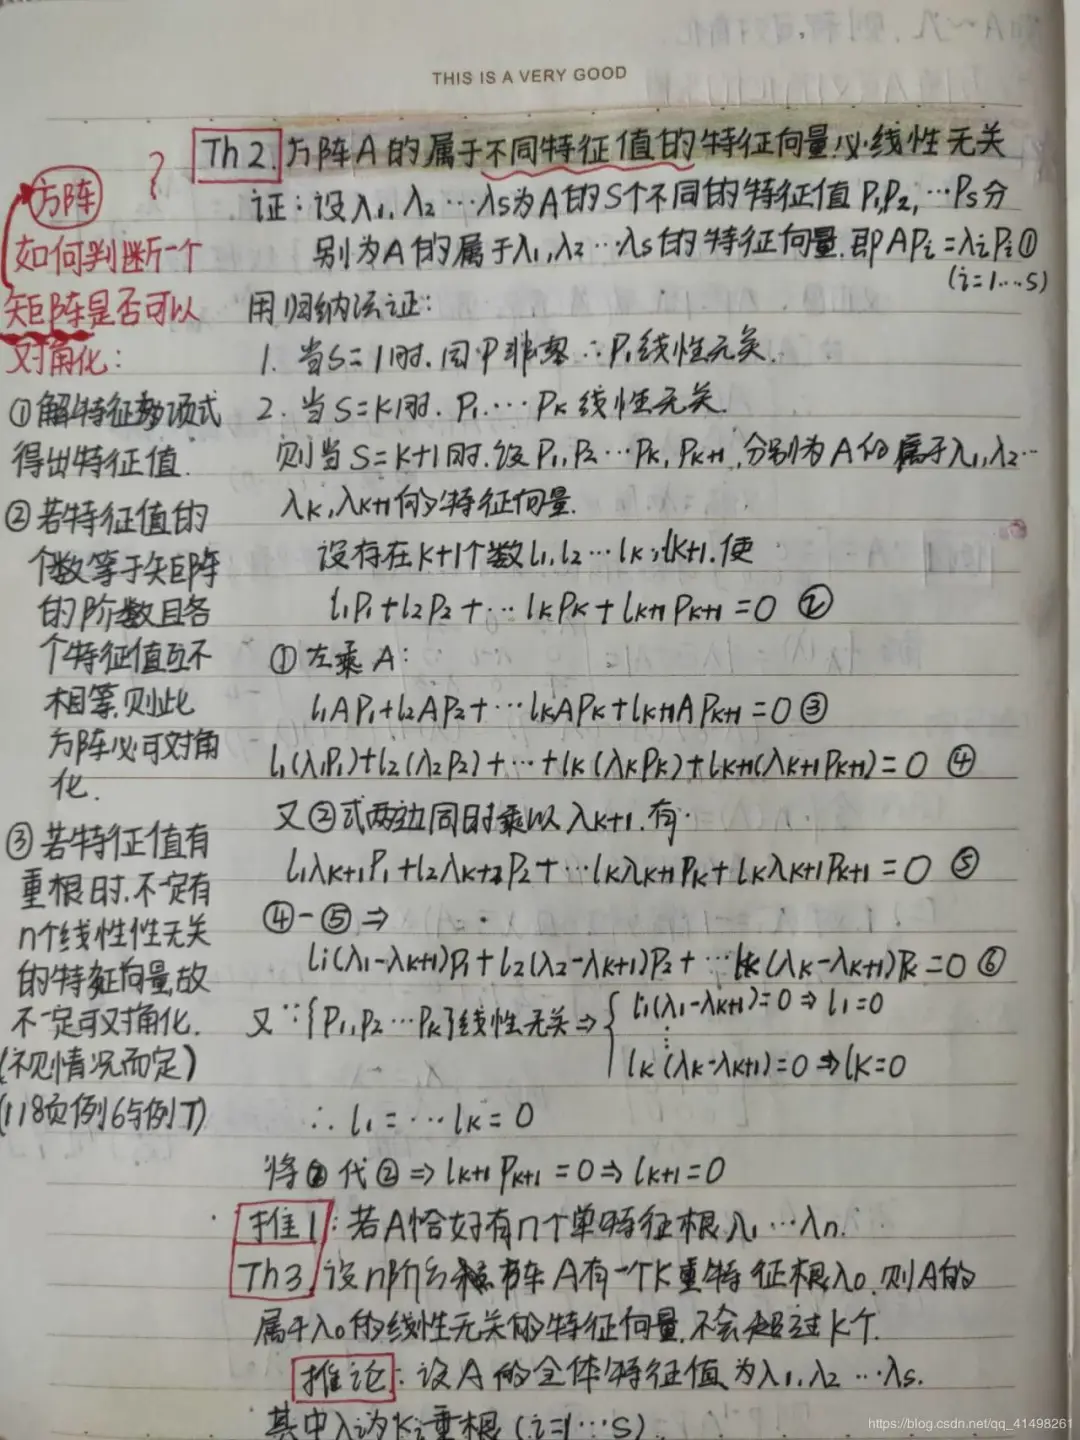 THIS IS A VERY GOOD
Th2. 方阵A的属于不同特征值的特征向量必线性无关
证:设λ1, λ2…λs为A的S个不同的特征值 P1,P2,…Ps分
别为A的属于λ1,λ2…λs的特征向量.即APi=λiPi①
(i=1…s)
用归纳法证:
1. 当S=1时. P非零 ∴P1线性无关.
2. 当S=K时. P1.…PK线性无关.
则当S=K+1时.设P1,P2…PK,PK+1,分别为A的属于λ1,λ2…
λK,λK+1的特征向量.
设存在K+1个数l1,l2…lK,lK+1.使
l1P1+l2P2+…lKPK+lK+1PK+1=0 ②
①左乘A:
l1AP1+l2AP2+…lKAPK+lK+1APK+1=0③
l1(λ1P1)+l2(λ2P2)+…+lK(λKPK)+lK+1(λK+1PK+1)=0 ④
又②式两边同时乘以λK+1.有.
l1λK+1P1+l2λK+1P2+…lKλK+1PK+lKλK+1PK+1=0 ⑤
④-⑤⇒
l1(λ1-λK+1)P1+l2(λ2-λK+1)P2+…lK(λK-λK+1)PK=0 ⑥
又∵{P1,P2…PK}线性无关⇒{l1(λ1-λK+1)=0⇒l1=0
⋮
lK(λK-λK+1)=0⇒lK=0
∴l1=…lK=0
将 代②⇒lK+1PK+1=0⇒lK+1=0
推1:若A恰好有n个单特征根λ1…λn.
Th3.设n阶 A有一个K重特征根λ0.则A的
属于λ0的线性无关的特征向量.不会超过K个.
推论:设A的全体特征值为λ1,λ2…λs.
其中λi为Ki重根(i=1…s).
?
方阵
如何判断一个
矩阵是否可以
对角化:
①解特征多项式
得出特征值.
②若特征值的
个数等于矩阵
的阶数且各
个特征值互不
相等,则此
方阵必可对角
化.
③若特征值有
重根时.不一定有
n个线性性无关
的特征向量,故
不一定可对角化.
(视情况而定)
(118页例6与例7)
https://blog.csdn.net/qq_41498261